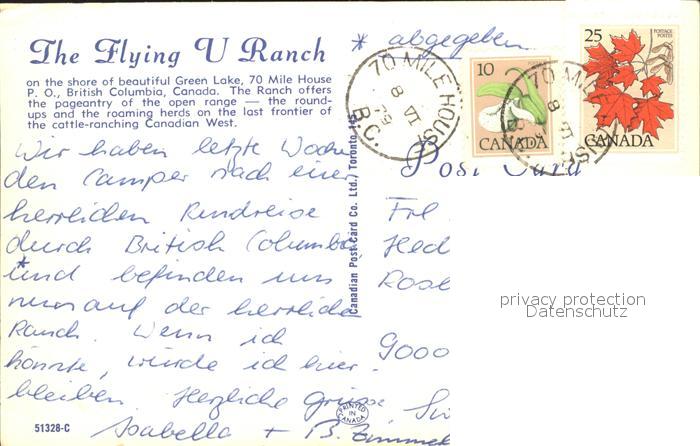 The Flying U Ranch
on the shore of beautiful Green Lake, 70 Mile House
P. O., British Columbia, Canada. The Ranch offers
the pageantry of the open range — the round-
ups and the roaming herds on the last frontier of
the cattle-ranching Canadian West.
* abgegeben
70 MILE HOUSE
8 VI 79
B.C.
10
CANADA
70 MILE HOUSE
8 VI
25
POSTAGE POSTES
CANADA
Post Card
Wir haben letzte Woche
den Camper nach einer
herrlichen Rundreise
durch British Columbia
* und befinden uns
nun auf der herrlichen
Ranch. Wenn ich
könnte, würde ich hier
bleiben. Herzliche Grüsse
Isabella + B. Zimmer
Canadian Post Card Co. Ltd., Toronto
Frl
Hed
Rose
9000
privacy protection
Datenschutz
PRINTED IN CANADA
51328-C